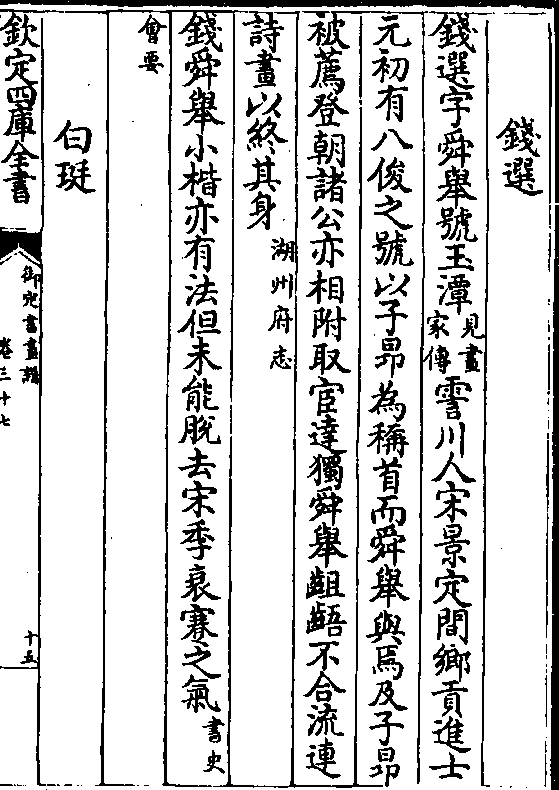 錢選
錢選字舜舉號玉潭見畫家傳霅川人宋景定間鄉貢進士
元初有八俊之號以子昻為稱首而舜舉與焉及子昻
被薦登朝諸公亦相附取宦達獨舜舉齟齬不合流連
詩畫以終其身湖州府志
錢舜舉小楷亦有法但未能脫去宋季衰賽之氣書史
會要
白珽
欽定四庫全書
御定書畫譜
卷三十七
十五